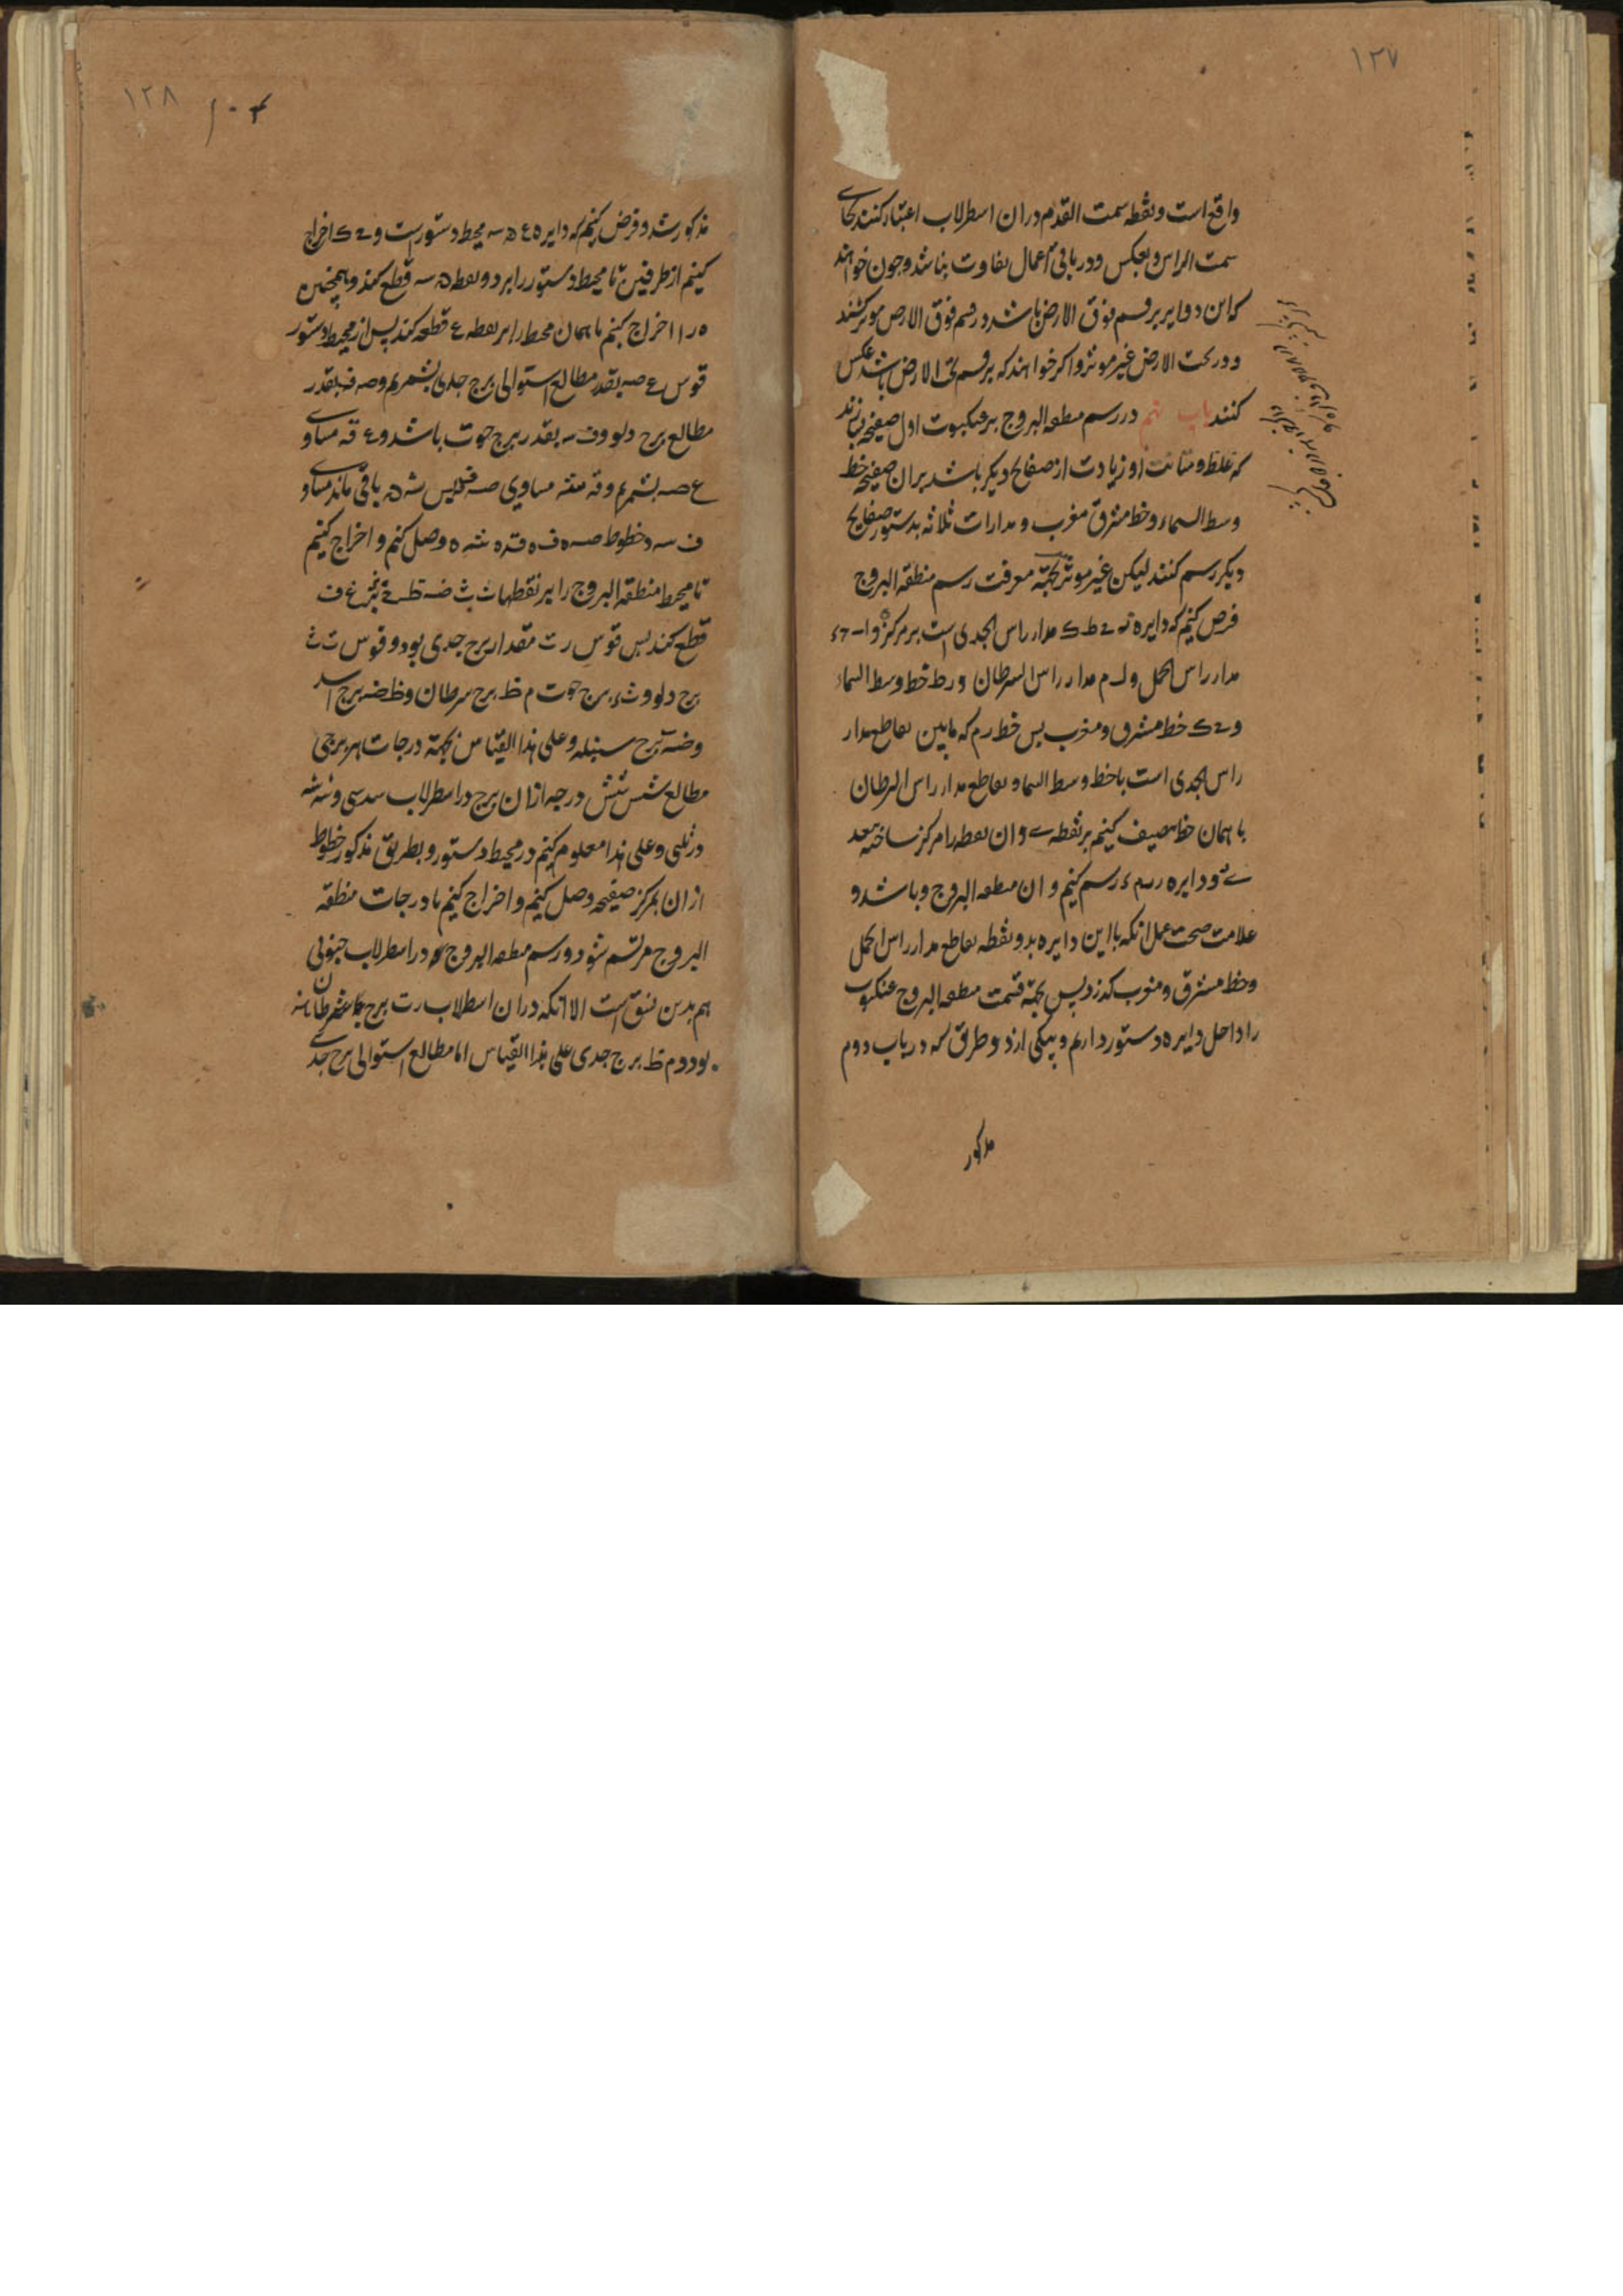 ۱۲۷
واقع است و نقطه سمت القدم در ان اسطرلاب اعتبار کنند بجای
سمت الراس و بعکس و در باقی اعمال تفاوت نباشد و چون خواهند
که این دوایر بر قسم فوق الارض باشد در قسم فوق الارض موثر کنند
و در تحت الارض غیر موثر و اکر خواهند که بر قسم تحت الارض باشد عکس
کنند باب نهم در رسم منطقه البروج بر عنکبوت اول صفیحه بسازند
که غلظ و متانت او زیادت از صفایح دیکر باشد بر ان صفیحه خط
وسط السماء و خط مشرق مغرب و مدارات ثلاثه بدستور صفایح
دیکر رسم کنند لیکن غیر موثر بجهة معرفت رسم منطقه البروج
فرض کنیم که دایره ح ط ک مدار راس الجدی است بر مرکز ه و ا
مدار راس الحمل و ل م مدار راس السرطان و ر ط خط وسط السماء
و ح ک خط مشرق و مغرب پس خط ر م که مابین تقاطع مدار
راس الجدی است با خط وسط السما و تقاطع مدار راس السرطان
با همان خط تنصیف کنیم بر نقطه و ان نقطه را مرکز ساخته ببعد
و دایره رسم کنیم و ان منطقه البروج و باشد و
علامت صحت عمل انکه با این دایره بدو نقطه تقاطع مدار راس الحمل
و خط مشرق و مغرب کذرد پس بجهة قسمت منطقه البروج عنکبوت
را داخل دایره دستور داریم و بیکی از دو طرق که در باب دوم
مذکور
۱۲۸
مذکور شد و فرض کنیم که دایره ع ه سه محیط دستور است و ح ک اخراج
کنیم از طرفین تا محیط دستور را بر دو نقطه ه سه قطع کند و همچنین
ه ر را اخراج کنیم تا همان محیط را بر نقطه ع قطع کند پس از محیط دستور
قوس ع صه بقدر مطالع استوائی برج جدی بشمریم و صه ف بقدر
مطالع برج دلو و ف سه بقدر برج حوت باشد و ع قه مساوی
ع صه بشمریم و قه شه مساوی صه ف پس شه ه باقی ماند مساوی
ف سه و خطوط صه ه ف ه قه ه شه ه وصل کنیم و اخراج کنیم
تا محیط منطقه البروج را بر نقطهاء
قطع کند پس قوس ر ت مقدار برج جدی بود و قوس ت ث
برج دلو و ث برج حوت م ظ برج سرطان و ظ ضه برج اسد
و ضه برج سنبله و علی هذا القیاس بجهة درجات هر برجی
مطالع شش شش درجه از ان برج در اسطرلاب سدسی و سه سه
در ثلثی و علی هذا معلوم کنیم در محیط دستور و بطریق مذکور خطوط
از ان بمرکز صفیحه وصل کنیم و اخراج کنیم تا درجات منطقه
البروج مرتسم شود و رسم منطقه البروج در اسطرلاب جنوبی
هم بدین نسق است الا انکه در ان اسطرلاب ر ت برج سرطان
بود و م ظ برج جدی علی هذا القیاس اما مطالع استوائی برج جدی